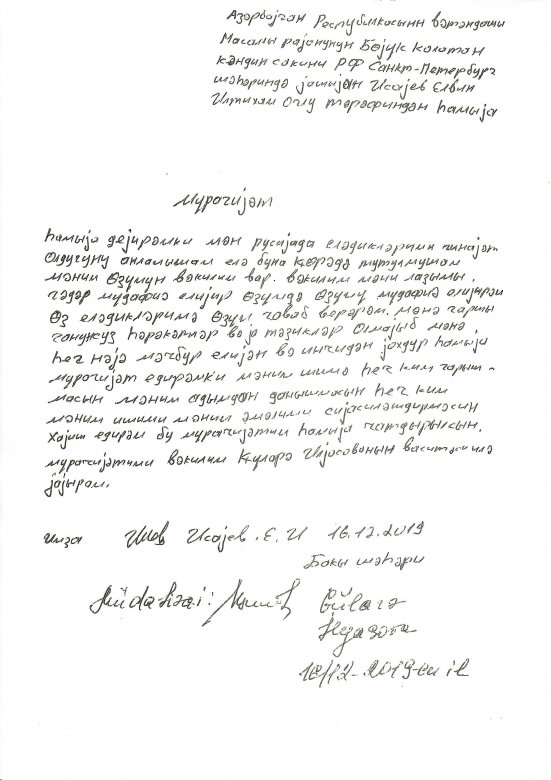 Азәрбојҹан Республикасынн вәтәндаши
Масалы рајонунун Бөјук Колатан
кәндин сакини РФ Санкт-Петербург
шәһәриндә јашијан Исајев Елвин
Илтихам Оғлу тәрәфиндән һамыја
Мурачијәт
һамыја дејирәмки мән русијада еләдикләрими ҹинајәт
Олдуғуну анламышам елә буна көрәдә тутулмушам
мәним өзүмүн вәкилим вар. вәкилим мәни лазымы.
гәдәр мудафиә елијир өзүмдә өзүмү мудафиә елијирәм
өз еләдикләримә өзүм ҹаваб верәрәм. мәнә гаршы
ганунсуз һәрәкәтләр вә ја тәзјигләр Олмајыб мәнә
һеч нәјә мәҹбур елијән вә инҹидән јохдур һамыја
мураҹијәт едирәмки мәним ишимә һеч ким гарыш-
масын мәним адымдан данышмасын һеч ким
мәним ишими мәним әмәлими сијасиләшдирмәсин
Хајиш едирәм бу мурачијәтим һамыја чатдырылсын.
мурачијәтими вәкилим Күларә Илјасованын васитәсилә
јајырам.
имза Исајев. Е. И 16.12.2019
Бакы шәһәри
Müdafiəçi: Gülarə
16/12-2019-cu il